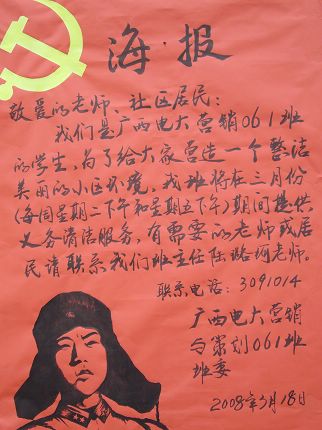 海·报
敬爱的老师、社区居民：
我们是广西电大营销061班
的学生，为了给大家营造一个整洁
美丽的小区环境，我班将在三月份
（每周星期二下午和星期五下午）期间提供
义务清洁服务，有需要的老师或居
民请联系我们班主任陆璐
老师。
联系电话：3091014
广西电大营销
与策划061班
班委
2008年3月18日